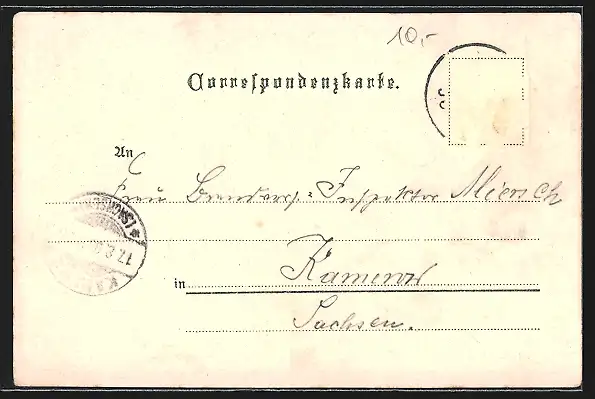 10,-
Correspondenzkarte.
An
Frau Inspektor Miersch
in Kamenz
Sachsen.